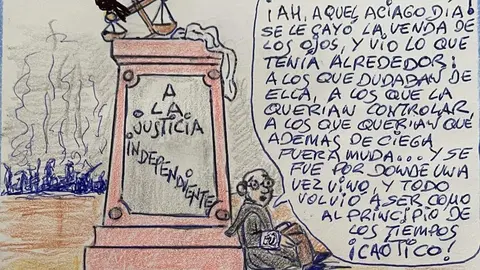 ¡AH, AQUEL ACIAGO DIA!
SE LE CAYÓ LA VENDA DE
LOS OJOS, Y VIO LO QUE
TENIA ALREDEDOR;
A LOS QUE DUDABAN DE
ELLA, A LOS QUE LA
QUERIAN CONTROLAR,
A LOS QUE QUERIAN QUE
ADEMAS DE CIEGA
FUERA MUDA... Y SE
FUE POR DONDE UNA
VEZ VINO, Y TODO
VOLVIO A SER COMO
AL PRINCIPIO DE
LOS TIEMPOS
¡CAÓTICO!
A
LA
JUSTICIA
INDEPENDIENTE